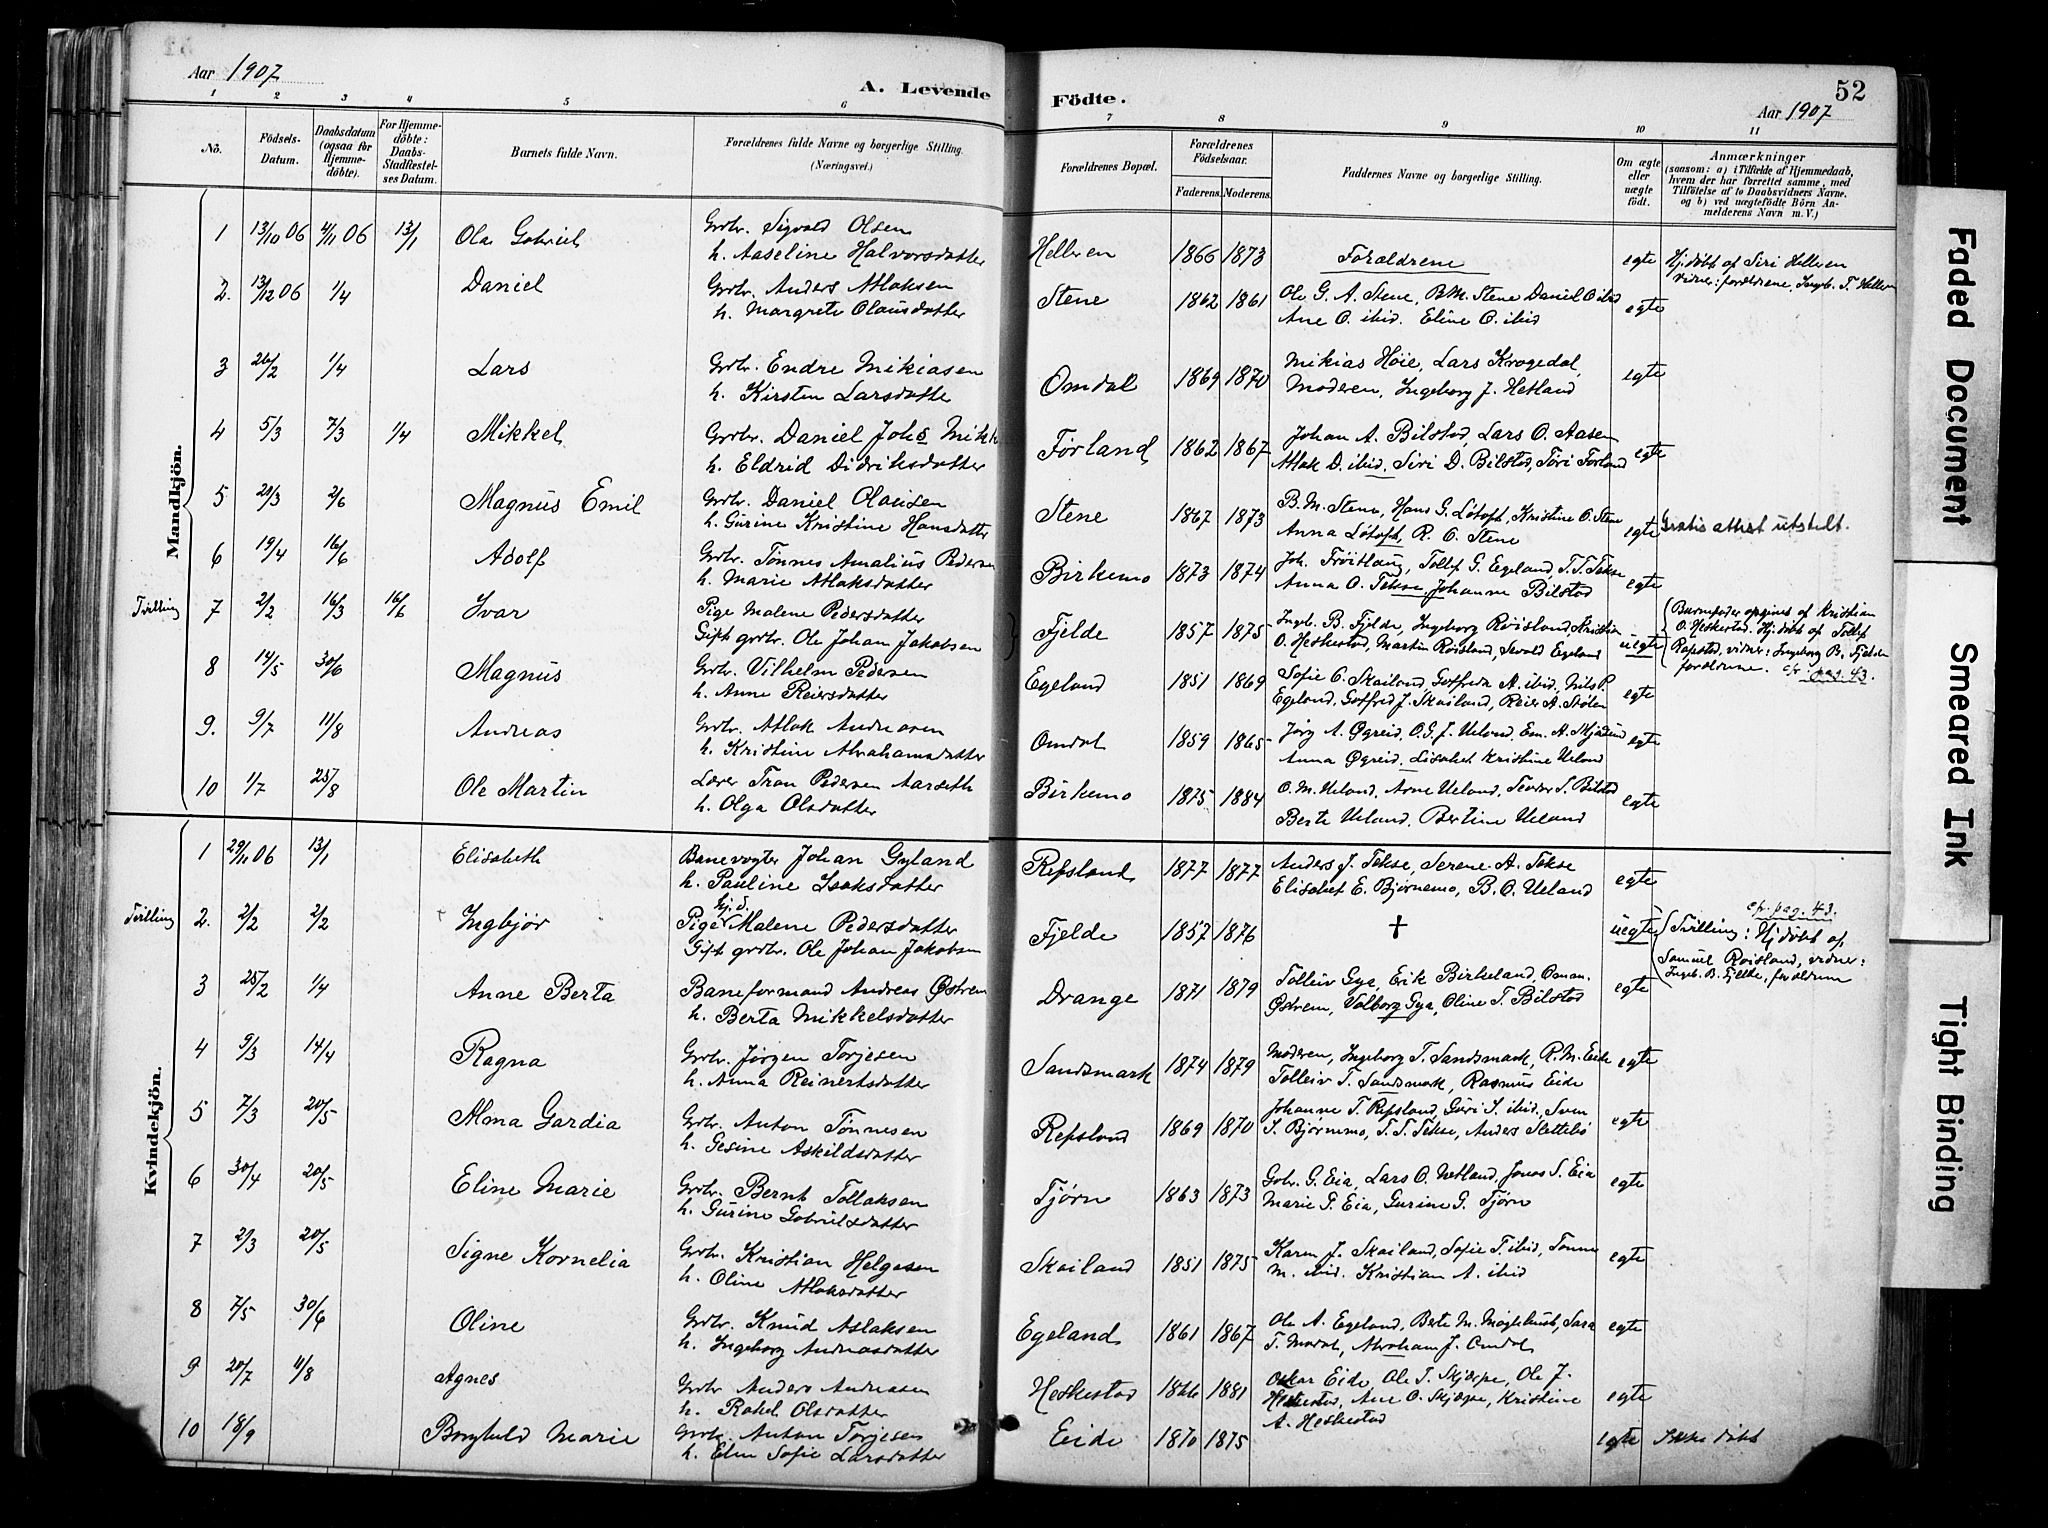 Aar 1907
A. Levende Födte.
52
Aar 1907
1 2 3 4 5 6 7 8 9 10 11
No. Födsels-Datum. Daabsdatum (ogsaa för Hjemme-döbte). For Hjemme-döbte: Daabs-Stadfæstel-ses Datum. Barnets fulde Navn. Forældrenes fulde Navne og borgerlige Stilling. (Næringsvei.) Forældrenes Bopæl. Forældrenes Födselsaar. Faderens. Moderens. Faddernes Navne og borgerlige Stilling. Om ægte eller uægte födt. Anmærkninger (saasom: a) i Tilfælde af Hjemmedaab, hvem der har forrettet samme, med Tilföielse af to Daabsvidners Navne, og b) ved uægtefödte Börn An-melderens Navn m. V.)
Mandkjön.
1 13/10 06 4/11 06 13/1 Olai Gabriel Grdbr. Sigvald Olsen Helleren 1866 1873 Forældrene egte Hj.døbt af Siri Helleren
h. Aaseline Halvorsdatter vidner: forældrene, Ingb. T. Helleren
2. 13/12 06 1/4 Daniel Grdbr. Anders Atlaksen Stene 1862 1861 Ole G. A. Stene, B.M. Stene Daniel O. ibid egte
h. Margrete Olausdatter Ane O. ibid. Eline O. ibid
3 26/2 1/4 Lars Grdbr. Endre Mikiasen Omdal 1869 1870 Mikias Høie, Lars Krogedal, egte
h. Kirsten Larsdatter Moderen, Ingeborg J. Hetland
4 5/3 7/3 1/4 Mikkel Grdbr. Daniel Johs Mikk Førland 1862 1867 Johan A. Bilstad, Lars O. Aasen egte
h. Eldrid Didriksdatter Atlak D. ibid, Siri D. Bilstad, Tøri Førland
5 20/3 2/6 Magnus Emil Grdbr. Daniel Olausen Stene 1867 1873 B.M. Stene, Hans G. Løtoft, Kristine O. Stene egte Gratis attest utstelt.
h. Gurine Kristine Hansdatter Anna Løtoft, R. O. Stene
6 19/4 16/6 Adolf Grdbr. Tønnes Amalius Pedersen Birkemo 1873 1874 Joh. Frøitlaug, Tollef G. Egeland, T. T. Tekse egte
h. Marie Atlaksdatter Anna O. Tekse, Johanne Bilstad
Tvilling 7 2/2 16/3 16/6 Ivar Pige Malene Pedersdatter Fjelde 1857 1875 Ingb. B. Fjelde, Ingeborg Røisland, Kristian uegte Barnefader opgives af Kristian
Gift grdbr. Ole Johan Jakobsen O. Heskestad, Martin Røisland, Sevald Egeland O. Heskestad. Hj.døbt af Tollef
Rapstad, vidner: Ingeborg B. Fjelde
forældrene. cfr. pag. 43.
8 14/5 30/6 Magnus Grdbr. Vilhelm Pedersen Egeland 1851 1869 Sofie O. Skailand, Gotfreda A. ibid, Nils P. egte
h. Anne Reiersdatter Egeland, Gotfred J. Skailand, Reier A. Stølen
9. 9/7 11/8 Andreas Grdbr. Atlak Andreasen Omdal 1859 1865 Jørg A. Øgreid, O.G.J. Ueland, Em. A. Mjaasund egte
h. Kristine Abrahamsdatter Anna Øgreid, Lisabet Kristine Ueland
10 1/7 25/8 Ole Martin Lærer Tran Pedersen Aarseth Birkemo 1875 1884 O. M. Ueland, Arne Ueland, Sevær S. Bilstad egte
h. Olga Olsdatter Berte Ueland, Bertine Ueland
Kvindekjön.
1 29/11 06 13/1 Elisabeth Banevogter Johan Gyland Refsland 1877 1877 Anders J. Tekse, Serene A. Tekse egte
h. Pauline Isaksdatter Elisabet E. Bjørnemo, B. O. Ueland
hj. d. cfr. pag. 43.
Tvilling 2. 2/2 2/2 Ingbjør Pige Malene Pedersdatter Fjelde 1857 1876 † uegte Tvilling: Hj.døbt af
Gift grdbr. Ole Johan Jakobsen Samuel Røisland, vidner:
Ingeb. B. Fjelde, forældrene
3 25/2 1/4 Anne Berta Baneformand Andreas Østrem Drange 1871 1879 Tolleiv Gya, Erik Birkeland, Osman egte
h. Berta Mikkelsdatter Østrem, Valborg Gya, Oline T. Bilstad
4 9/3 14/4 Ragna Grdbr. Jørgen Torjesen Sandsmark 1874 1879 Moderen, Ingeborg T. Sandsmark, R. M. Eide egte
h. Anna Reinertsdatter Tolleiv T. Sandsmark, Rasmus Eide
5 7/3 20/5 Alma Gardia Grdbr. Anton Tønnesen Refsland 1869 1870 Johanne T. Refsland, Guri S. ibid, Sven egte
h. Gesine Askildsdatter S. Bjørnemo, T. T. Tekse, Anders Slettebø
6 30/4 20/5 Eline Marie Grdbr. Bernt Tollaksen Tjørn 1863 1873 Gabr. G. Eia, Lars O. Netland, Jonas S. Eia egte
h. Gurine Gabrielsdatter Marie T. Eia, Gurine G. Tjørn
7 2/3 20/5 Signe Kornelia Grdbr. Kristian Helgesen Skailand 1851 1875 Karen J. Skailand, Sofie T. ibid, Tønnes egte
h. Oline Atlaksdatter M. ibid. Kristian A. ibid
8 7/5 30/6 Oline Grdbr. Knud Aslaksen Egeland 1861 1867 Ole A. Egeland, Berte M. Møglebust, Sara egte
h. Ingeborg Andreasdatter T. Mordal, Abraham J. Omdal
9 20/7 11/8 Agnes Grdbr Anders Andreasen Heskestad 1866 1881 Oskar Eide, Ole T. Skjæpe, Ole J. egte
h. Rakel Olsdatter Heskestad, Ane O. Skjæpe, Kristine
A. Heskestad
10 18/9 Borghild Marie Grdbr. Anton Torjesen Eide 1870 1875 egte Ikke døbt
h. Elen Sofie Larsdatter
Faded Document
Smeared Ink
Tight Binding